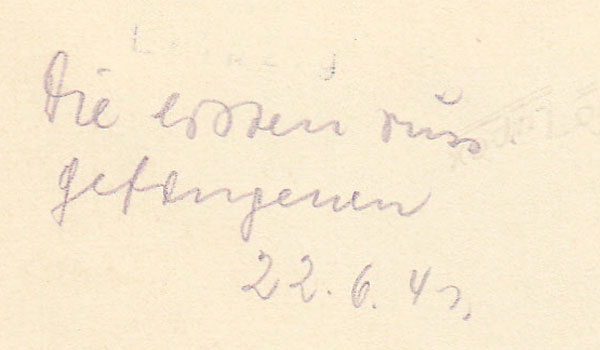 Die ersten russ.
gefangenen
22.6.41.